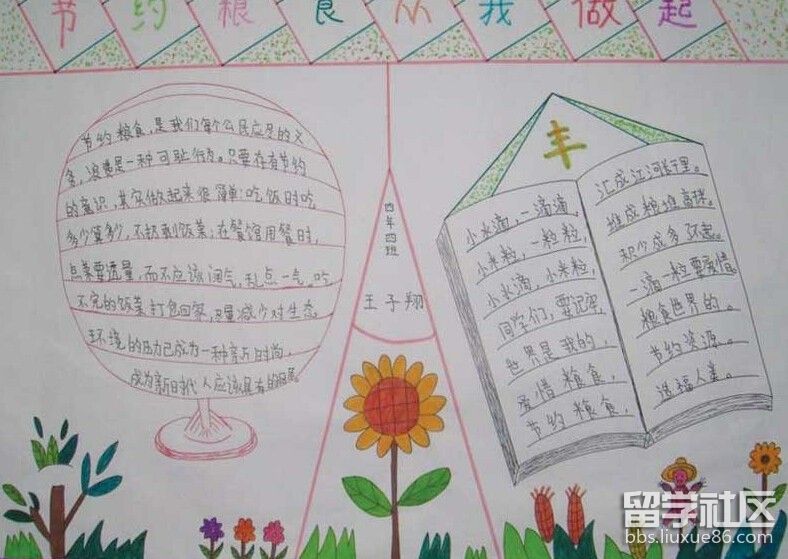 节约粮食从我做起
节约粮食,是我们每个公民应尽的义
务,浪费是一种可耻行为。只要存有节约
的意识,其实做起来很简单:吃饭时吃
多少算多少,不扔剩饭菜;在餐馆用餐时,
点菜要适量,而不应该阔气,乱点一气。吃
不完的饭菜打包回家,尽量减少对生态
环境的压力已成为一种
成为新时代人应该具有的
四年四班
王子翔
丰
小水滴,一滴滴,
小米粒,一粒粒,
小水滴,小米粒,
同学们,要记牢,
世界是我的,
爱惜粮食,
节约粮食,
汇成江河
堆成粮堆
积少成多
一滴一粒要爱惜。
粮食世界的。
节约资源。
造福人类。
留学社区
bbs.liuxue86.com